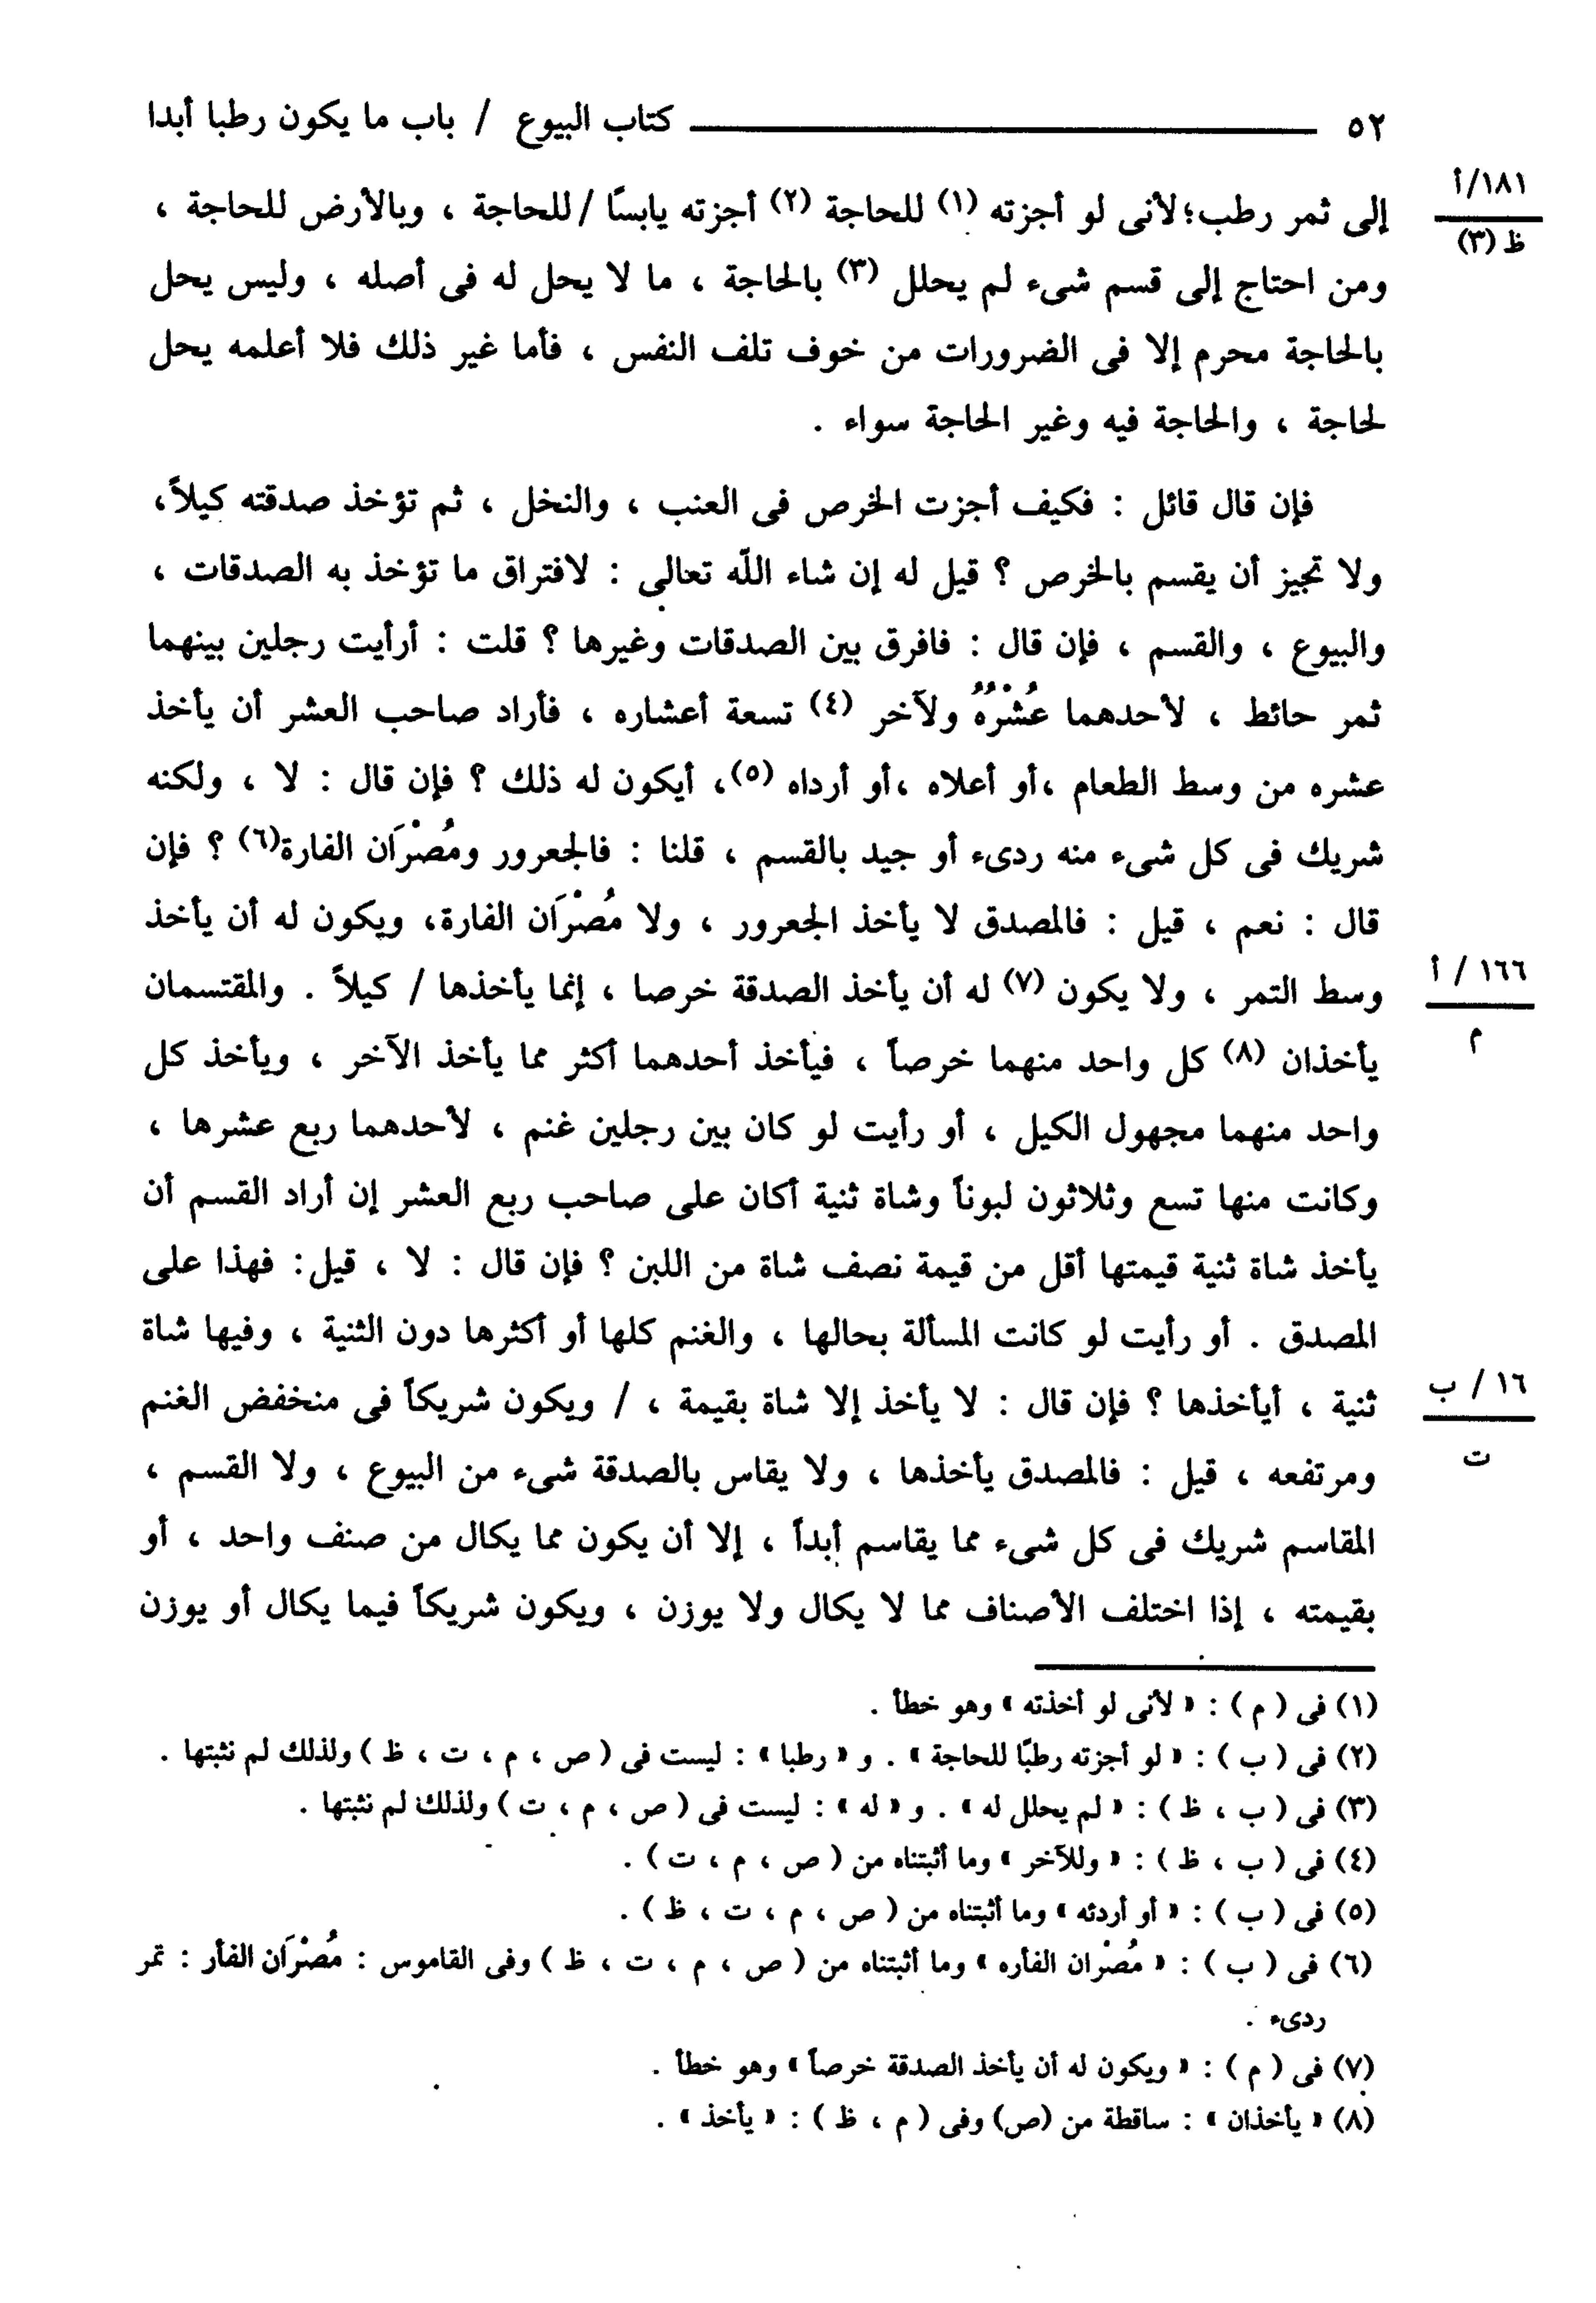 ٥٢ ـــــــــــــــــ كتاب البيوع / باب ما يكون رطبا أبدا
١٨١/أ
ظ (٣)
إلى ثمر رطب؛ لأنى لو أجزته (١) للحاجة (٢) أجزته يابسًا / للحاجة ، وبالأرض للحاجة ،
ومن احتاج إلى قسم شىء لم يحلل (٣) بالحاجة ، ما لا يحل له فى أصله ، وليس يحل
بالحاجة محرم إلا فى الضرورات من خوف تلف النفس ، فأما غير ذلك فلا أعلمه يحل
لحاجة ، والحاجة فيه وغير الحاجة سواء .
فإن قال قائل : فكيف أجزت الخرص فى العنب ، والنخل ، ثم تؤخذ صدقته كيلاً،
ولا تجيز أن يقسم بالخرص ؟ قيل له إن شاء الله تعالى : لافتراق ما تؤخذ به الصدقات ،
والبيوع ، والقسم ، فإن قال : فافرق بين الصدقات وغيرها ؟ قلت : أرأيت رجلين بينهما
ثمر حائط ، لأحدهما عُشْرُهُ ولآخر (٤) تسعة أعشاره ، فأراد صاحب العشر أن يأخذ
عشره من وسط الطعام ،أو أعلاه ،أو أرداه (٥)، أيكون له ذلك ؟ فإن قال : لا ، ولكنه
شريك فى كل شىء منه ردىء أو جيد بالقسم ، قلنا : فالجعرور ومُصْرَان الفارة(٦) ؟ فإن
قال : نعم ، قيل : فالمصدق لا يأخذ الجعرور ، ولا مُصْرَان الفارة، ويكون له أن يأخذ
١٦٦ / أ
م
وسط التمر ، ولا يكون (٧) له أن يأخذ الصدقة خرصا ، إنما يأخذها / كيلاً . والمقتسمان
يأخذان (٨) كل واحد منهما خرصاً ، فيأخذ أحدهما أكثر مما يأخذ الآخر ، ويأخذ كل
واحد منهما مجهول الكيل ، أو رأيت لو كان بين رجلين غنم ، لأحدهما ربع عشرها ،
وكانت منها تسع وثلاثون لبوناً وشاة ثنية أكان على صاحب ربع العشر إن أراد القسم أن
يأخذ شاة ثنية قيمتها أقل من قيمة نصف شاة من اللبن ؟ فإن قال : لا ، قيل: فهذا على
المصدق . أو رأيت لو كانت المسألة بحالها ، والغنم كلها أو أكثرها دون الثنية ، وفيها شاة
١٦ / ب
ت
ثنية ، أيأخذها ؟ فإن قال : لا يأخذ إلا شاة بقيمة ، / ويكون شريكاً فى منخفض الغنم
ومرتفعه ، قيل : فالمصدق يأخذها ، ولا يقاس بالصدقة شىء من البيوع ، ولا القسم ،
المقاسم شريك فى كل شىء مما يقاسم أبداً ، إلا أن يكون مما يكال من صنف واحد ، أو
بقيمته ، إذا اختلف الأصناف مما لا يكال ولا يوزن ، ويكون شريكاً فيما يكال أو يوزن
(١) فى ( م ) : « لأنى لو أخذته » وهو خطأ .
(٢) فى ( ب ) : « لو أجزته رطبًا للحاجة » . و « رطبا » : ليست فى ( ص ، م ، ت ، ظ ) ولذلك لم نثبتها .
(٣) فى ( ب ، ظ ) : « لم يحلل له » . و « له » : ليست فى ( ص ، م ، ت ) ولذلك لم نثبتها .
(٤) فى ( ب ، ظ ) : « وللآخر » وما أثبتناه من ( ص ، م ، ت ) .
(٥) فى ( ب ) : « أو أردئه » وما أثبتناه من ( ص ، م ، ت ، ظ ) .
(٦) فى ( ب ) : « مُصْران الفأره » وما أثبتناه من ( ص ، م ، ت ، ظ ) وفى القاموس : مُصْرَان الفأر : تمر
ردىء .
(٧) فى ( م ) : « ويكون له أن يأخذ الصدقة خرصاً » وهو خطأ .
(٨) « يأخذان » : ساقطة من (ص) وفى ( م ، ظ ) : « يأخذ » .